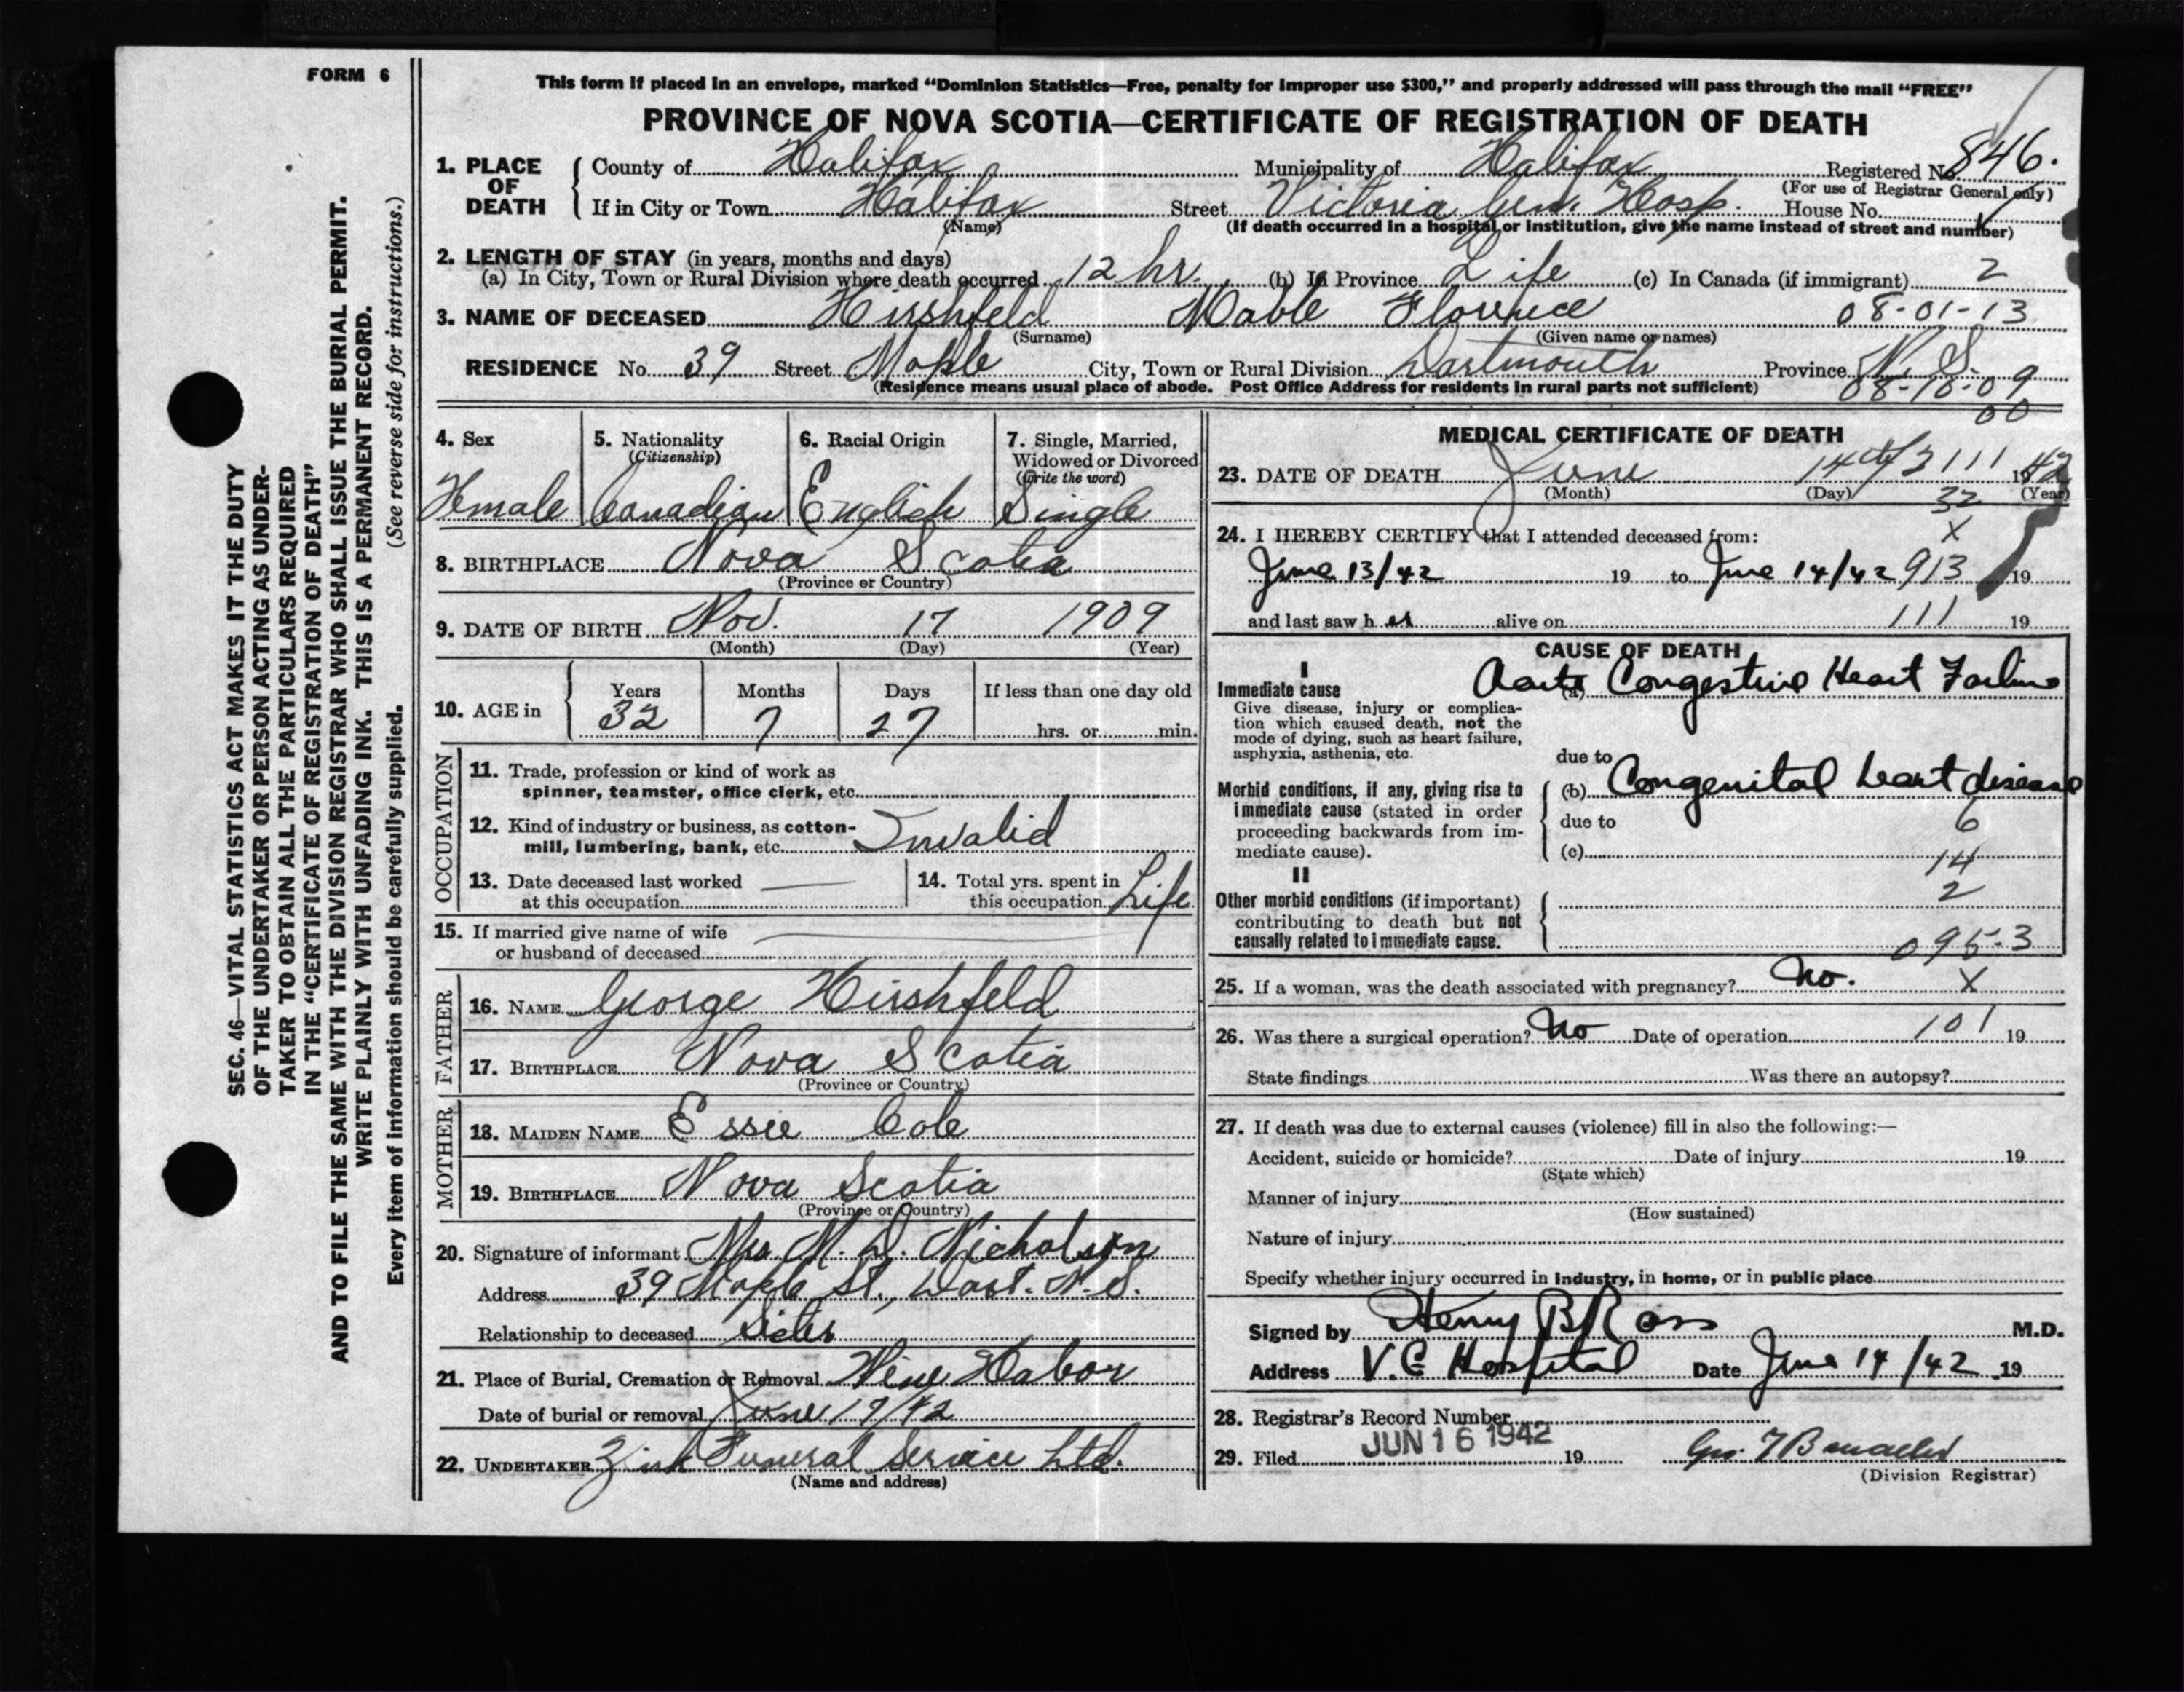 FORM 6
This form if placed in an envelope, marked “Dominion Statistics—Free, penalty for improper use $300,” and properly addressed will pass through the mail “FREE”
PROVINCE OF NOVA SCOTIA—CERTIFICATE OF REGISTRATION OF DEATH
SEC. 46—VITAL STATISTICS ACT MAKES IT THE DUTY
OF THE UNDERTAKER OR PERSON ACTING AS UNDER-
TAKER TO OBTAIN ALL THE PARTICULARS REQUIRED
IN THE “CERTIFICATE OF REGISTRATION OF DEATH”
AND TO FILE THE SAME WITH THE DIVISION REGISTRAR WHO SHALL ISSUE THE BURIAL PERMIT.
WRITE PLAINLY WITH UNFADING INK. THIS IS A PERMANENT RECORD.
Every item of information should be carefully supplied. (See reverse side for instructions.)
1. PLACE OF DEATH
County of Halifax Municipality of Halifax Registered No. 846.
(For use of Registrar General only)
If in City or Town Halifax Street Victoria Gen. Hosp. House No.
(Name) (If death occurred in a hospital or institution, give the name instead of street and number)
2. LENGTH OF STAY (in years, months and days)
(a) In City, Town or Rural Division where death occurred 12 hr. (b) In Province Life (c) In Canada (if immigrant) 2
3. NAME OF DECEASED Hirshfeld Mable Florence 08-01-13
(Surname) (Given name or names)
RESIDENCE No. 39 Street Maple City, Town or Rural Division Dartmouth Province N.S.
(Residence means usual place of abode. Post Office Address for residents in rural parts not sufficient) 08-10-09
00
4. Sex 5. Nationality 6. Racial Origin 7. Single, Married,
(Citizenship) Widowed or Divorced
(Write the word)
Female Canadian English Single
8. BIRTHPLACE Nova Scotia
(Province or Country)
9. DATE OF BIRTH Nov. 17 1909
(Month) (Day) (Year)
10. AGE in Years Months Days If less than one day old
32 7 27 hrs. or min.
OCCUPATION
11. Trade, profession or kind of work as
spinner, teamster, office clerk, etc.
12. Kind of industry or business, as cotton-
mill, lumbering, bank, etc. Invalid
13. Date deceased last worked
at this occupation
14. Total yrs. spent in
this occupation Life
15. If married give name of wife
or husband of deceased
FATHER
16. NAME George Hirshfeld
17. BIRTHPLACE Nova Scotia
(Province or Country)
MOTHER
18. MAIDEN NAME Essie Cole
19. BIRTHPLACE Nova Scotia
(Province or Country)
20. Signature of informant Mrs M. D. Nicholson
Address 39 Maple St., Dart. N.S.
Relationship to deceased Sister
21. Place of Burial, Cremation or Removal Wine Habor
Date of burial or removal June 17/42
22. UNDERTAKER Zink Funeral Service Ltd.
(Name and address)
MEDICAL CERTIFICATE OF DEATH
23. DATE OF DEATH June 14th 3111 1942
(Month) (Day) (Year)
32
24. I HEREBY CERTIFY that I attended deceased from: X
June 13/42 19 to June 14/42 913 19
and last saw h er alive on 111 19
CAUSE OF DEATH
I
Immediate cause (a) Acute Congestive Heart Failure
Give disease, injury or complica-
tion which caused death, not the
mode of dying, such as heart failure,
asphyxia, asthenia, etc.
due to
Morbid conditions, if any, giving rise to (b) Congenital heart disease
immediate cause (stated in order due to 6
proceeding backwards from im-
mediate cause). (c) 14
II
Other morbid conditions (if important) 2
contributing to death but not
causally related to immediate cause. 095-3
25. If a woman, was the death associated with pregnancy? No. X
26. Was there a surgical operation? No Date of operation 101 19
State findings Was there an autopsy?
27. If death was due to external causes (violence) fill in also the following:—
Accident, suicide or homicide? Date of injury 19
(State which)
Manner of injury
(How sustained)
Nature of injury
Specify whether injury occurred in industry, in home, or in public place
Signed by Henry B Ross M.D.
Address V.G Hospital Date June 14/42 19
28. Registrar's Record Number
29. Filed JUN 16 1942 19
(Division Registrar)